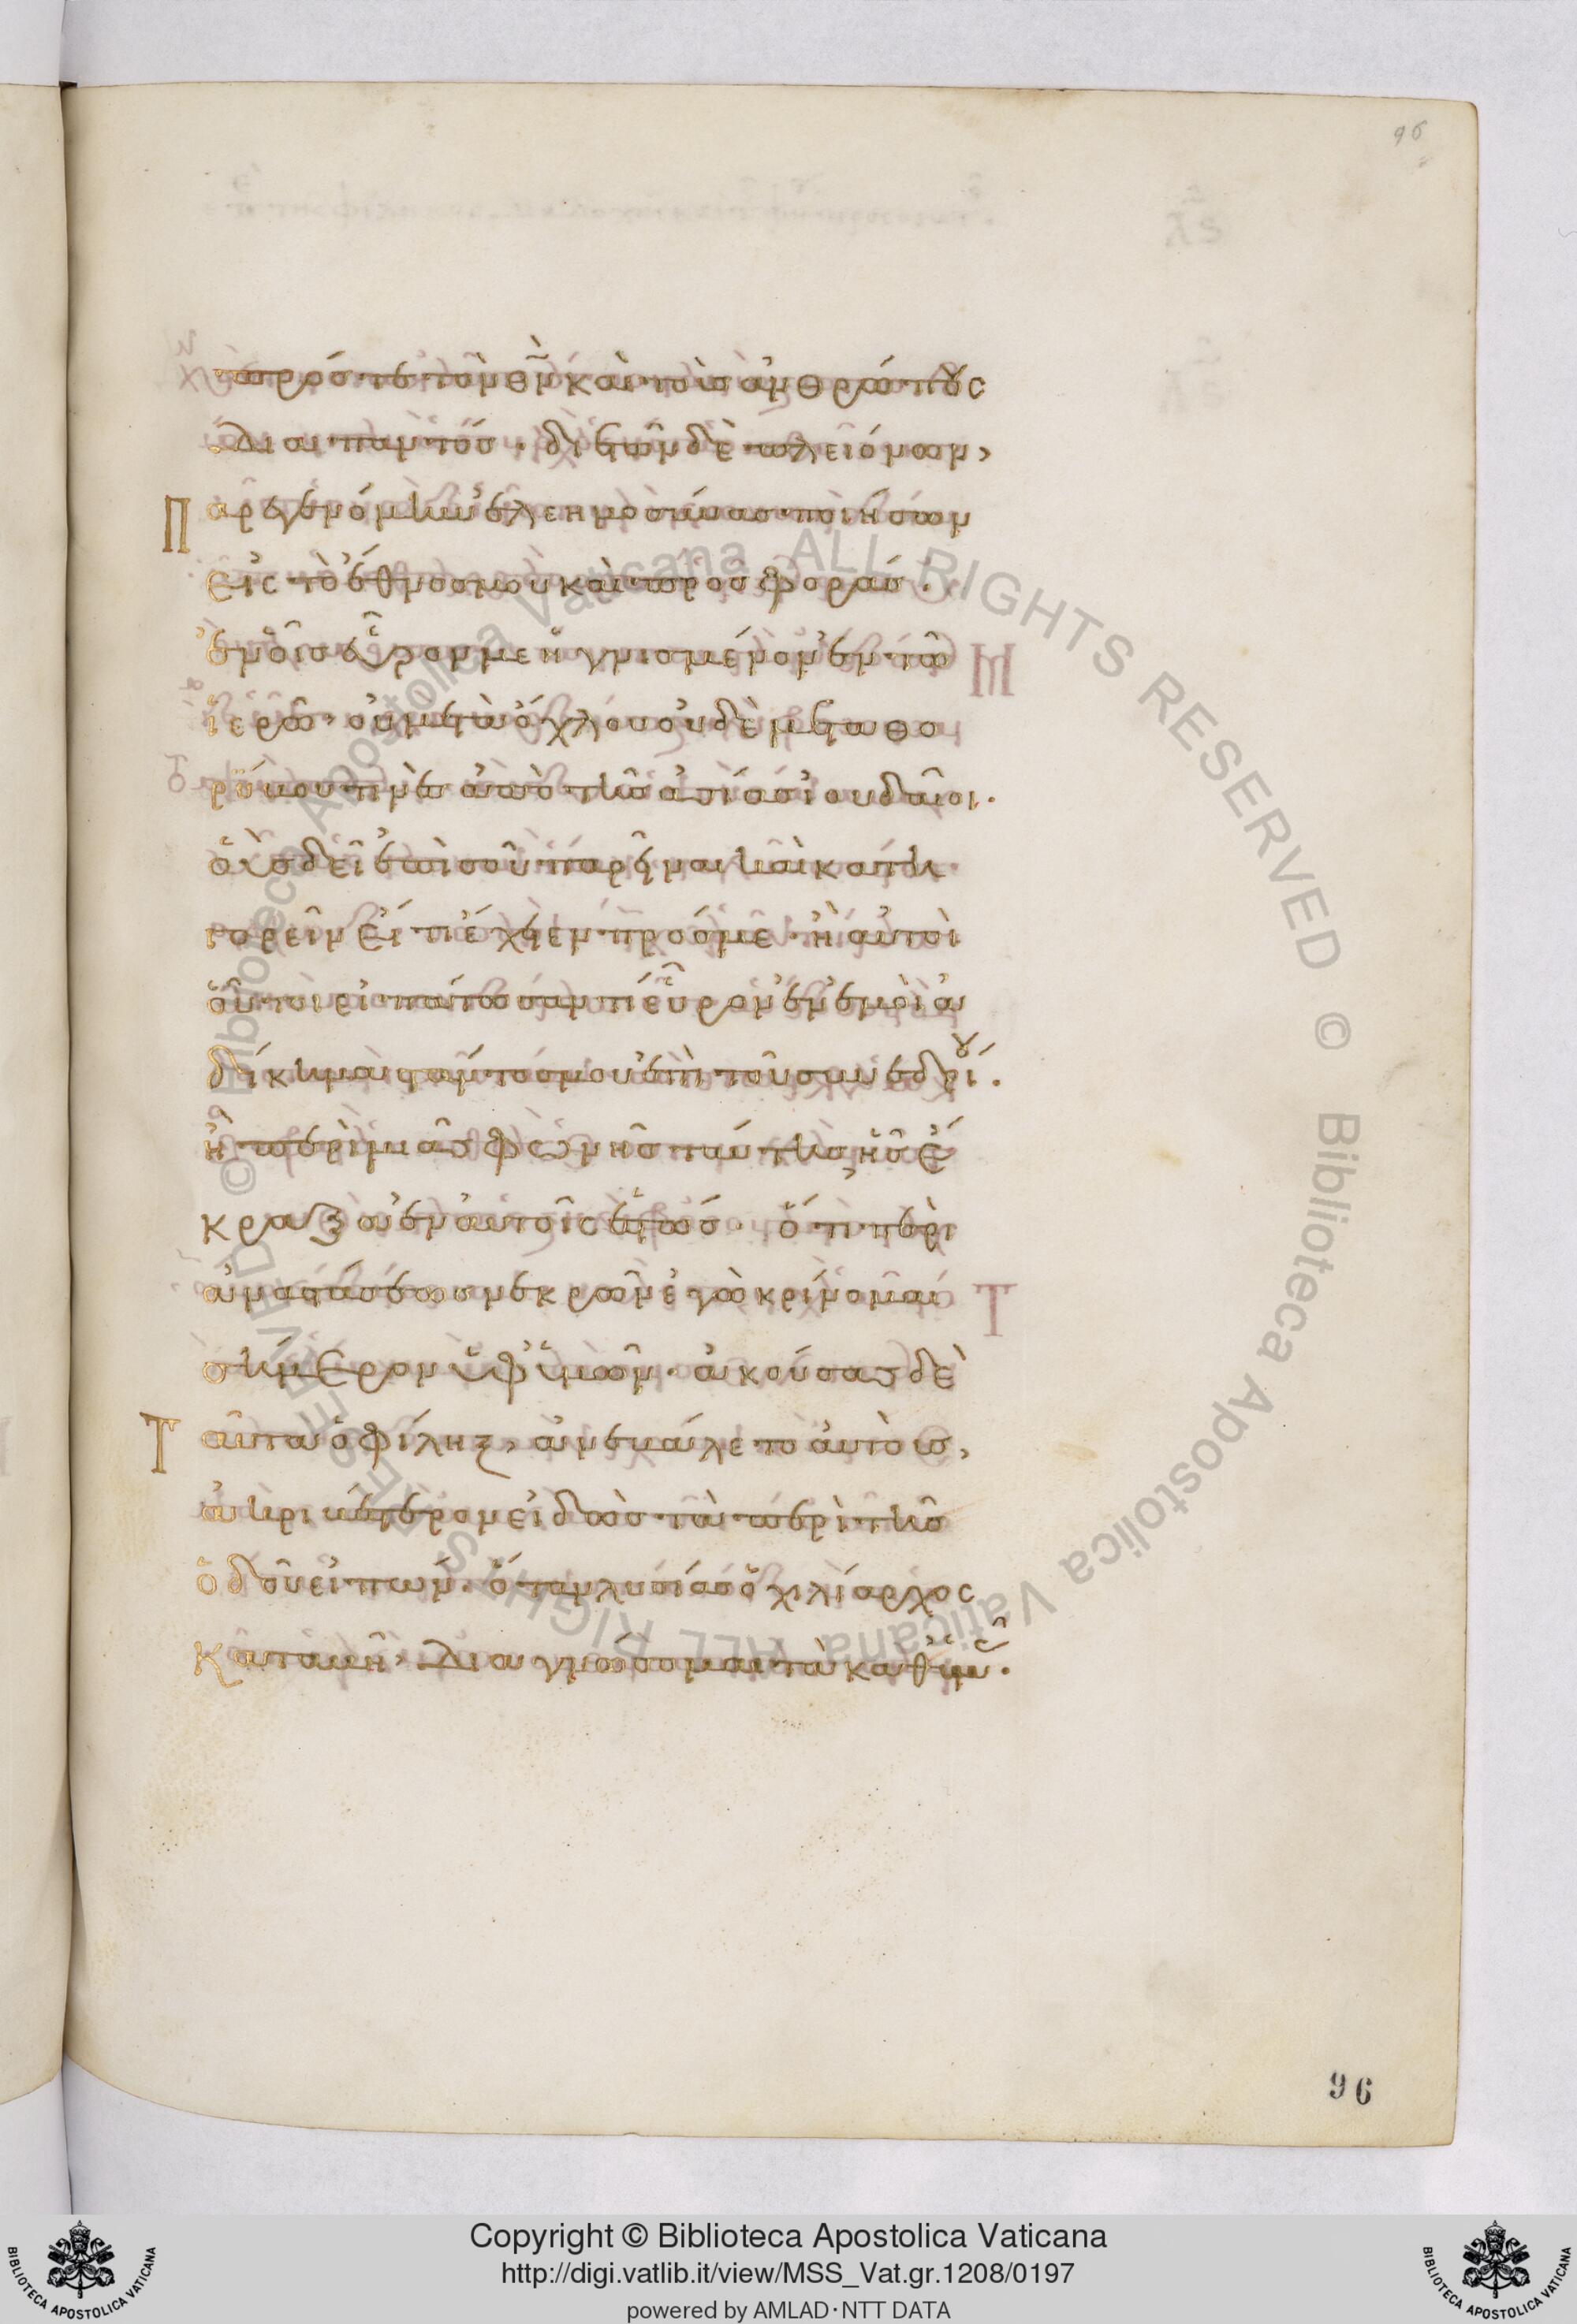 96
πρός τε τὸν θν̄ καὶ τοὺς ἀνθρώπους
Διαπαντός· δι ἐτῶν δὲ πλειόνων,
Παρεγενόμην ἐλεημοσύνας ποιήσων
εἰς τὸ ἔθνος μου καὶ προσφοράς·
ἐν οἷς εὗρον με ἡγνισμένον ἐν τῶ
ἱερῶ· οὐ μετὰ ὄχλου οὐδὲ μετα θο
ρύβου τινὲς ἀπὸ τῆς ἀσίας ἰουδαῖοι·
οὓς δεῖ ἐπὶ σοῦ παρεῖναι καὶ κατη
γορεῖν εἴ τι ἔχειεν πρός με· ἢ αὐτοὶ
οὗτοι εἰπάτωσαν τί εὗρον ἐν ἐμοὶ ἀ
δίκημα στάντος μου ἐπὶ τοῦ συνεδρίου·
ἢ περὶ μιᾶς φωνῆς ταύτης, ἧς ἔ
κραξα ἐν αὐτοῖς ἑστώς· ὅτι περὶ
ἀναστάσεως νεκρῶν ἐγὼ κρίνομαι
σήμερον ὑφ ὑμῶν· ἀκούσας δὲ
Ταῦτα ὁ φίληξ, ἀνεβάλετο αὐτούς,
ἀκριβέστερον εἰδὼς τὰ περὶ τῆς
ὁδοῦ εἰπών· ὅταν λυσίας ὁ χιλίαρχος
Καταβῆ, Διαγνώσομαι τὰ καθ ὑμᾶς·
96
© Biblioteca Apostolica Vaticana ALL RIGHTS RESERVED © Biblioteca Apostolica Vaticana ALL RIGHTS RESERVED
BIBLIOTECA APOSTOLICA VATICANA
Copyright © Biblioteca Apostolica Vaticana
http://digi.vatlib.it/view/MSS_Vat.gr.1208/0197
powered by AMLAD·NTT DATA
BIBLIOTECA APOSTOLICA VATICANA